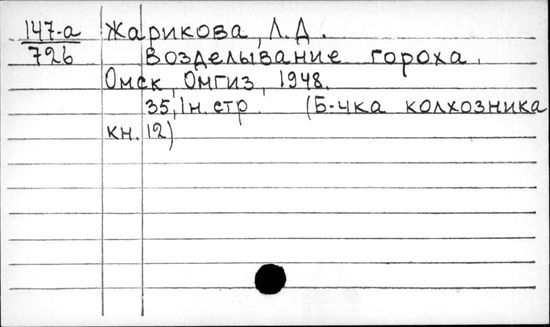 147-а Жарикова, Л.Д.
726 Возделывание гороха.
Омск, Омгиз, 1948.
35, 1н. стр. (Б-чка колхозника
кн. 12)